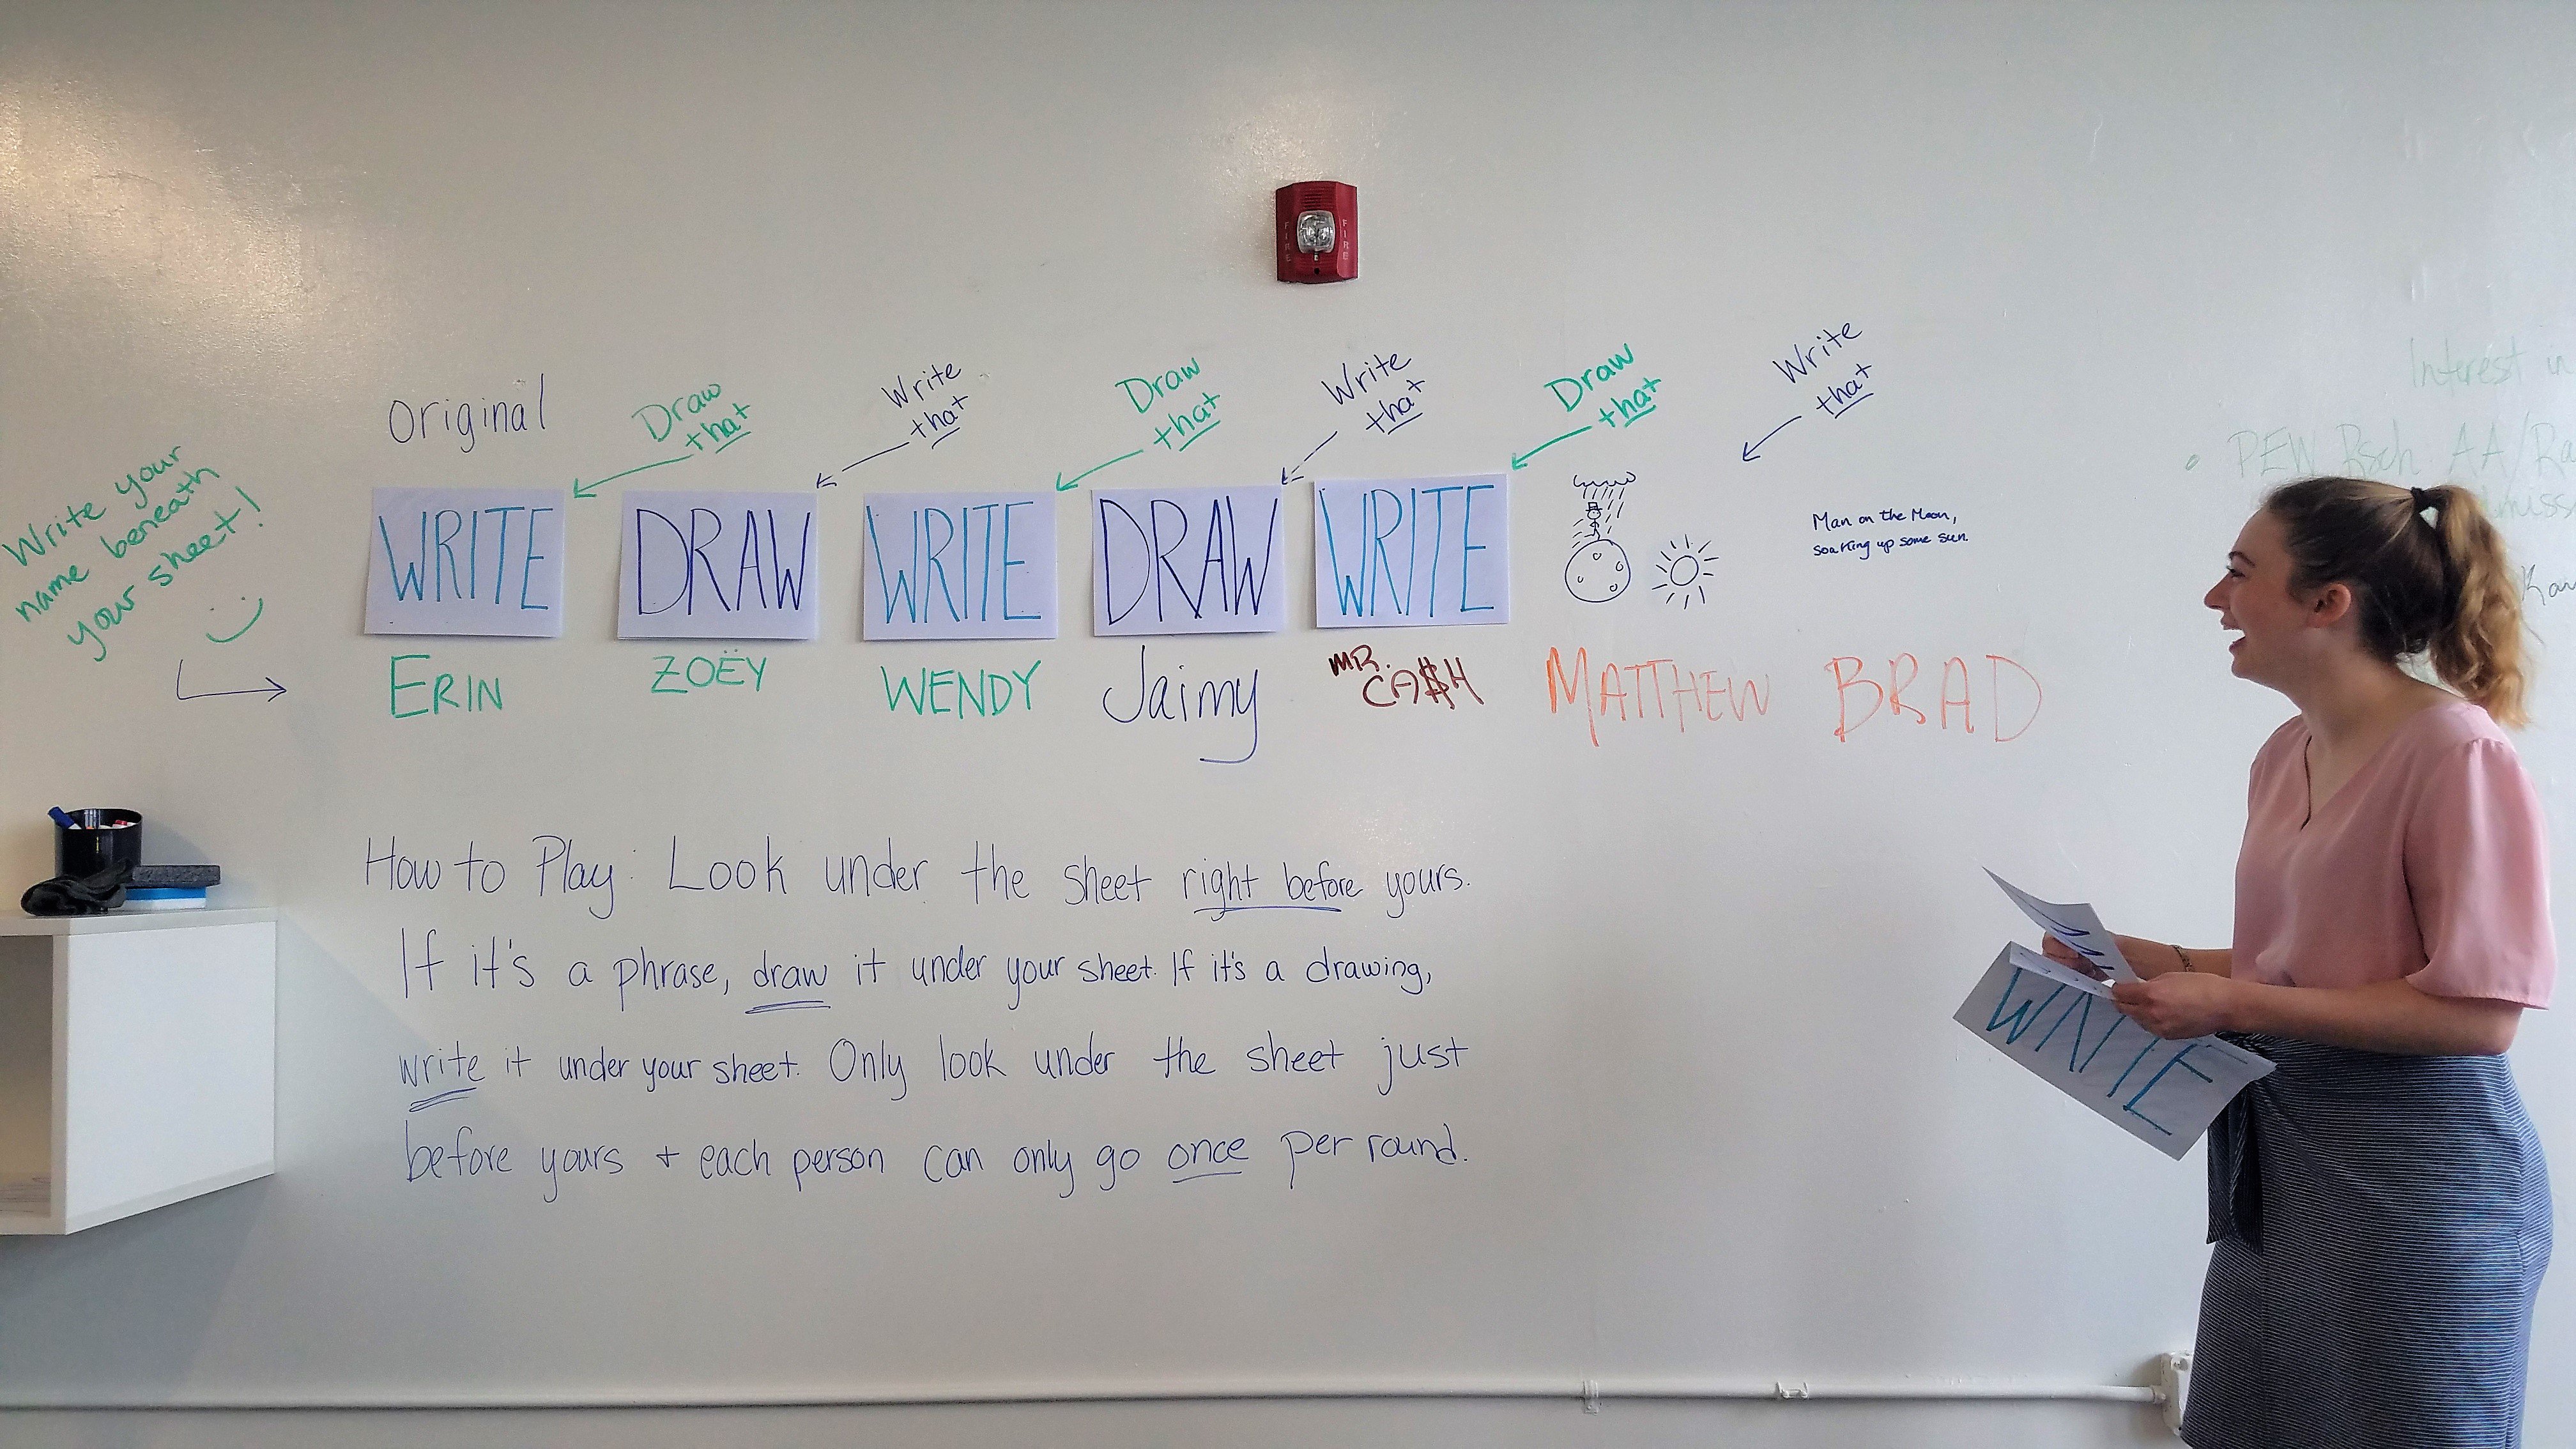 Original
Draw
that
Write
that
Draw
that
Write
that
Draw
that
Write
that
FIRE
FIRE
Write your
name beneath
your sheet!
WRITE
DRAW
WRITE
DRAW
WRITE
Man on the Moon,
soaking up some sun.
ERIN
ZOËY
WENDY
Jaimy
MR.
CA$H
MATTHEW
BRAD
How to Play: Look under the sheet right before yours.
If it's a phrase, draw it under your sheet. If it's a drawing,
write it under your sheet. Only look under the sheet just
before yours + each person can only go once per round.
Interest in
PEW Rsch AA/Ra
WRITE